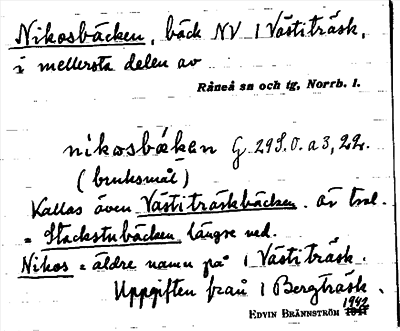 Nikosbäcken, bäck NV 1 Västiträsk,
i mellersta delen av
Råneå sn och tg, Norrb. l.
nikosbäkən G 29 S.O. a 3, 22.
(bruksmål)
Kallas även Västiträskbäcken. av tral.
= Stackstubäcken längre ned.
Nikos = äldre namn på 1 Västiträsk.
Uppgiften från 1 Bergträsk.
1942
EDVIN BRÄNNSTRÖM